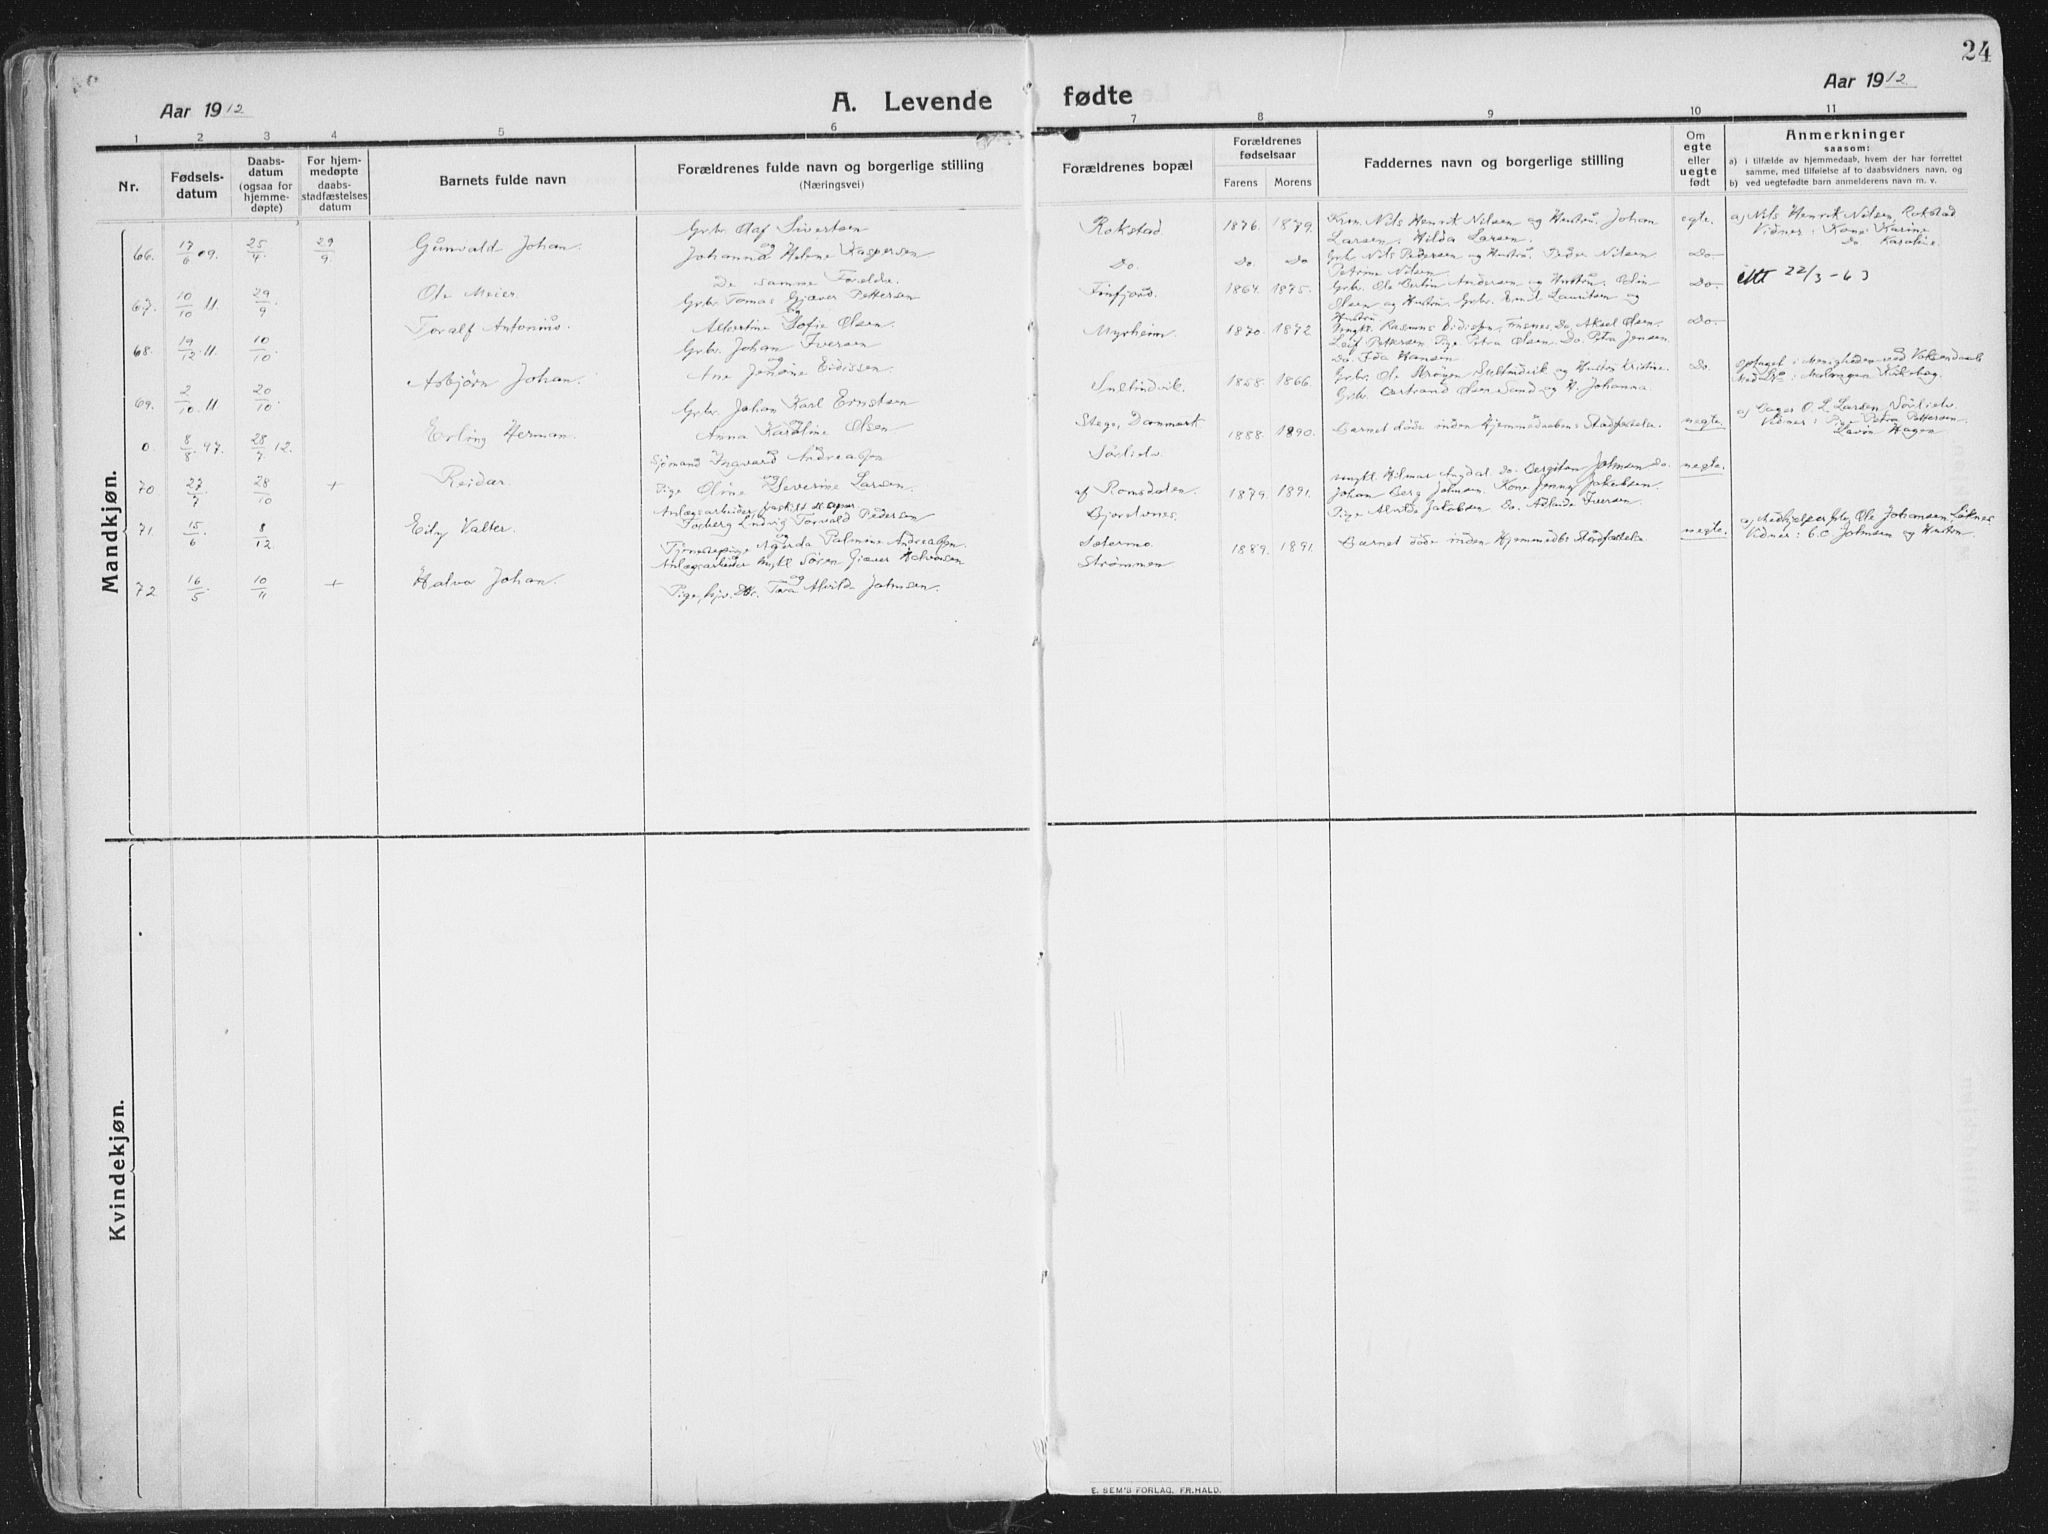 24
Aar 1912
A. Levende fødte
Aar 1912
1 2 3 4 5 6 7 8 9 10 11
Nr.
Fødsels-
datum
Daabs-
datum
(ogsaa for
hjemme-
døpte)
For hjem-
medøpte
daabs-
stadfæstelses
datum
Barnets fulde navn
Forældrenes fulde navn og borgerlige stilling
(Næringsvei)
Forældrenes bopæl
Forældrenes
fødselsaar
Farens Morens
Faddernes navn og borgerlige stilling
Om
egte
eller
uegte
født
Anmerkninger
saasom:
a) i tilfælde av hjemmedaab, hvem der har forrettet
samme, med tilføielse af to daabsvidners navn, og
b) ved uegtefødte barn anmelderens navn m. v.
Mandkjøn.
66. 17/6 09. 25/4. 29/9 Gunvald Johan.
Grbr. Olaf Sivertsen
og
Johanna Helene Kaspersen
Rokstad. 1876. 1879.
Krm. Nils Henrik Nilsen og Hustru, Johan
Larsen, Hilda Larsen.
egte.
a) Nils Henrik Nilsen, Rokstad
Vidner: Kone Karine
Do Karoline.
67. 10/10 11. 29/9 Ole Meier.
De samme Foreldre.
Do. Do. Do
Grbr. Nils Pedersen og Hustru, Peder Nilsen
Petrine Nilsen
Do
22/3-63
68. 19/12 11. 10/10 Toralf Antonius.
Grbr. Tomas Gjæver Pettersen
og
Albertine Sofie Olsen.
Finfjord. 1864. 1875.
Grbr. Ole Bertin Andersen og Hustru, Odin
Olsen og Hustru, Grbr. Emil Lauritsen og
Hustru.
Do.
69. 2/10 11 20/10. Asbjørn Johan.
Grbr. Johan Iversen
og
Ane Jensine Eidissen.
Myrheim. 1870. 1872
Ungkl. Rasmus Eidissen, Finsnes, Do. Aksel Olsen.
Leif Pettersen, Pige Petra Olsen, Do. Petra Jensen
Do. Ida Hansen
Do.
0. 8/8 97. 28/7 12. Erling Herman.
Grbr. Johan Karl Ernstsen
og
Anna Karoline Olsen
Sultindvik. 1858. 1866.
Grbr. Ole Strøym Sultindvik og Hustru Kristine.
Grbr. Bertrand Olsen Sand og H. Johanna.
Do.
optaget i Menigheden ved Voksendaab
Malangen Kirkebog.
70 27/7. 28/10 + Reidar.
Sjømand Ingvard Andreassen
og
Pige Oline Severine Larsen.
Stege, Danmark
Sørlielv.
1888. 1890.
Barnet døde inden Hjemmedaabens Stadfæstelse.
uegte.
a) Bager O. L. Larsen, Sørlielv.
Vidner: Pige Petra Pettersen
Hagen
71. 15/6 8/12. Eilif Valter.
Anlægsarbeider,
Forberg Ludvig Torvald Pedersen
og
Tjenestepige Agørda Palmine Andreassen.
af Romsdalen.
Bjorelvnes.
1879. 1891.
Ungkl. Hilmar Angdal. Do. Bergiton Johnsen Do.
Johan Berg Johnsen. Kone Jenny Jakobsen.
Pige Alvilde Jakobsen Do. Adlaide Iversen.
uegte.
72 16/5 10/11 + Halvor Johan.
Anlægsarbeider Ungkl Søren Gjæver Halvorsen
og
Pige, Tora Alvilde Johnsen.
Sætermo
Strømmen
1889. 1891.
Barnet døde inden Hjemmedbs Stadfæstelse
uegte.
a) Medhjelper Ole Johansen Løknes
Vidner: C. C. Johnsen og Hustru.
Kvindekjøn.
E. SEM'S FORLAG, FR.HALD.